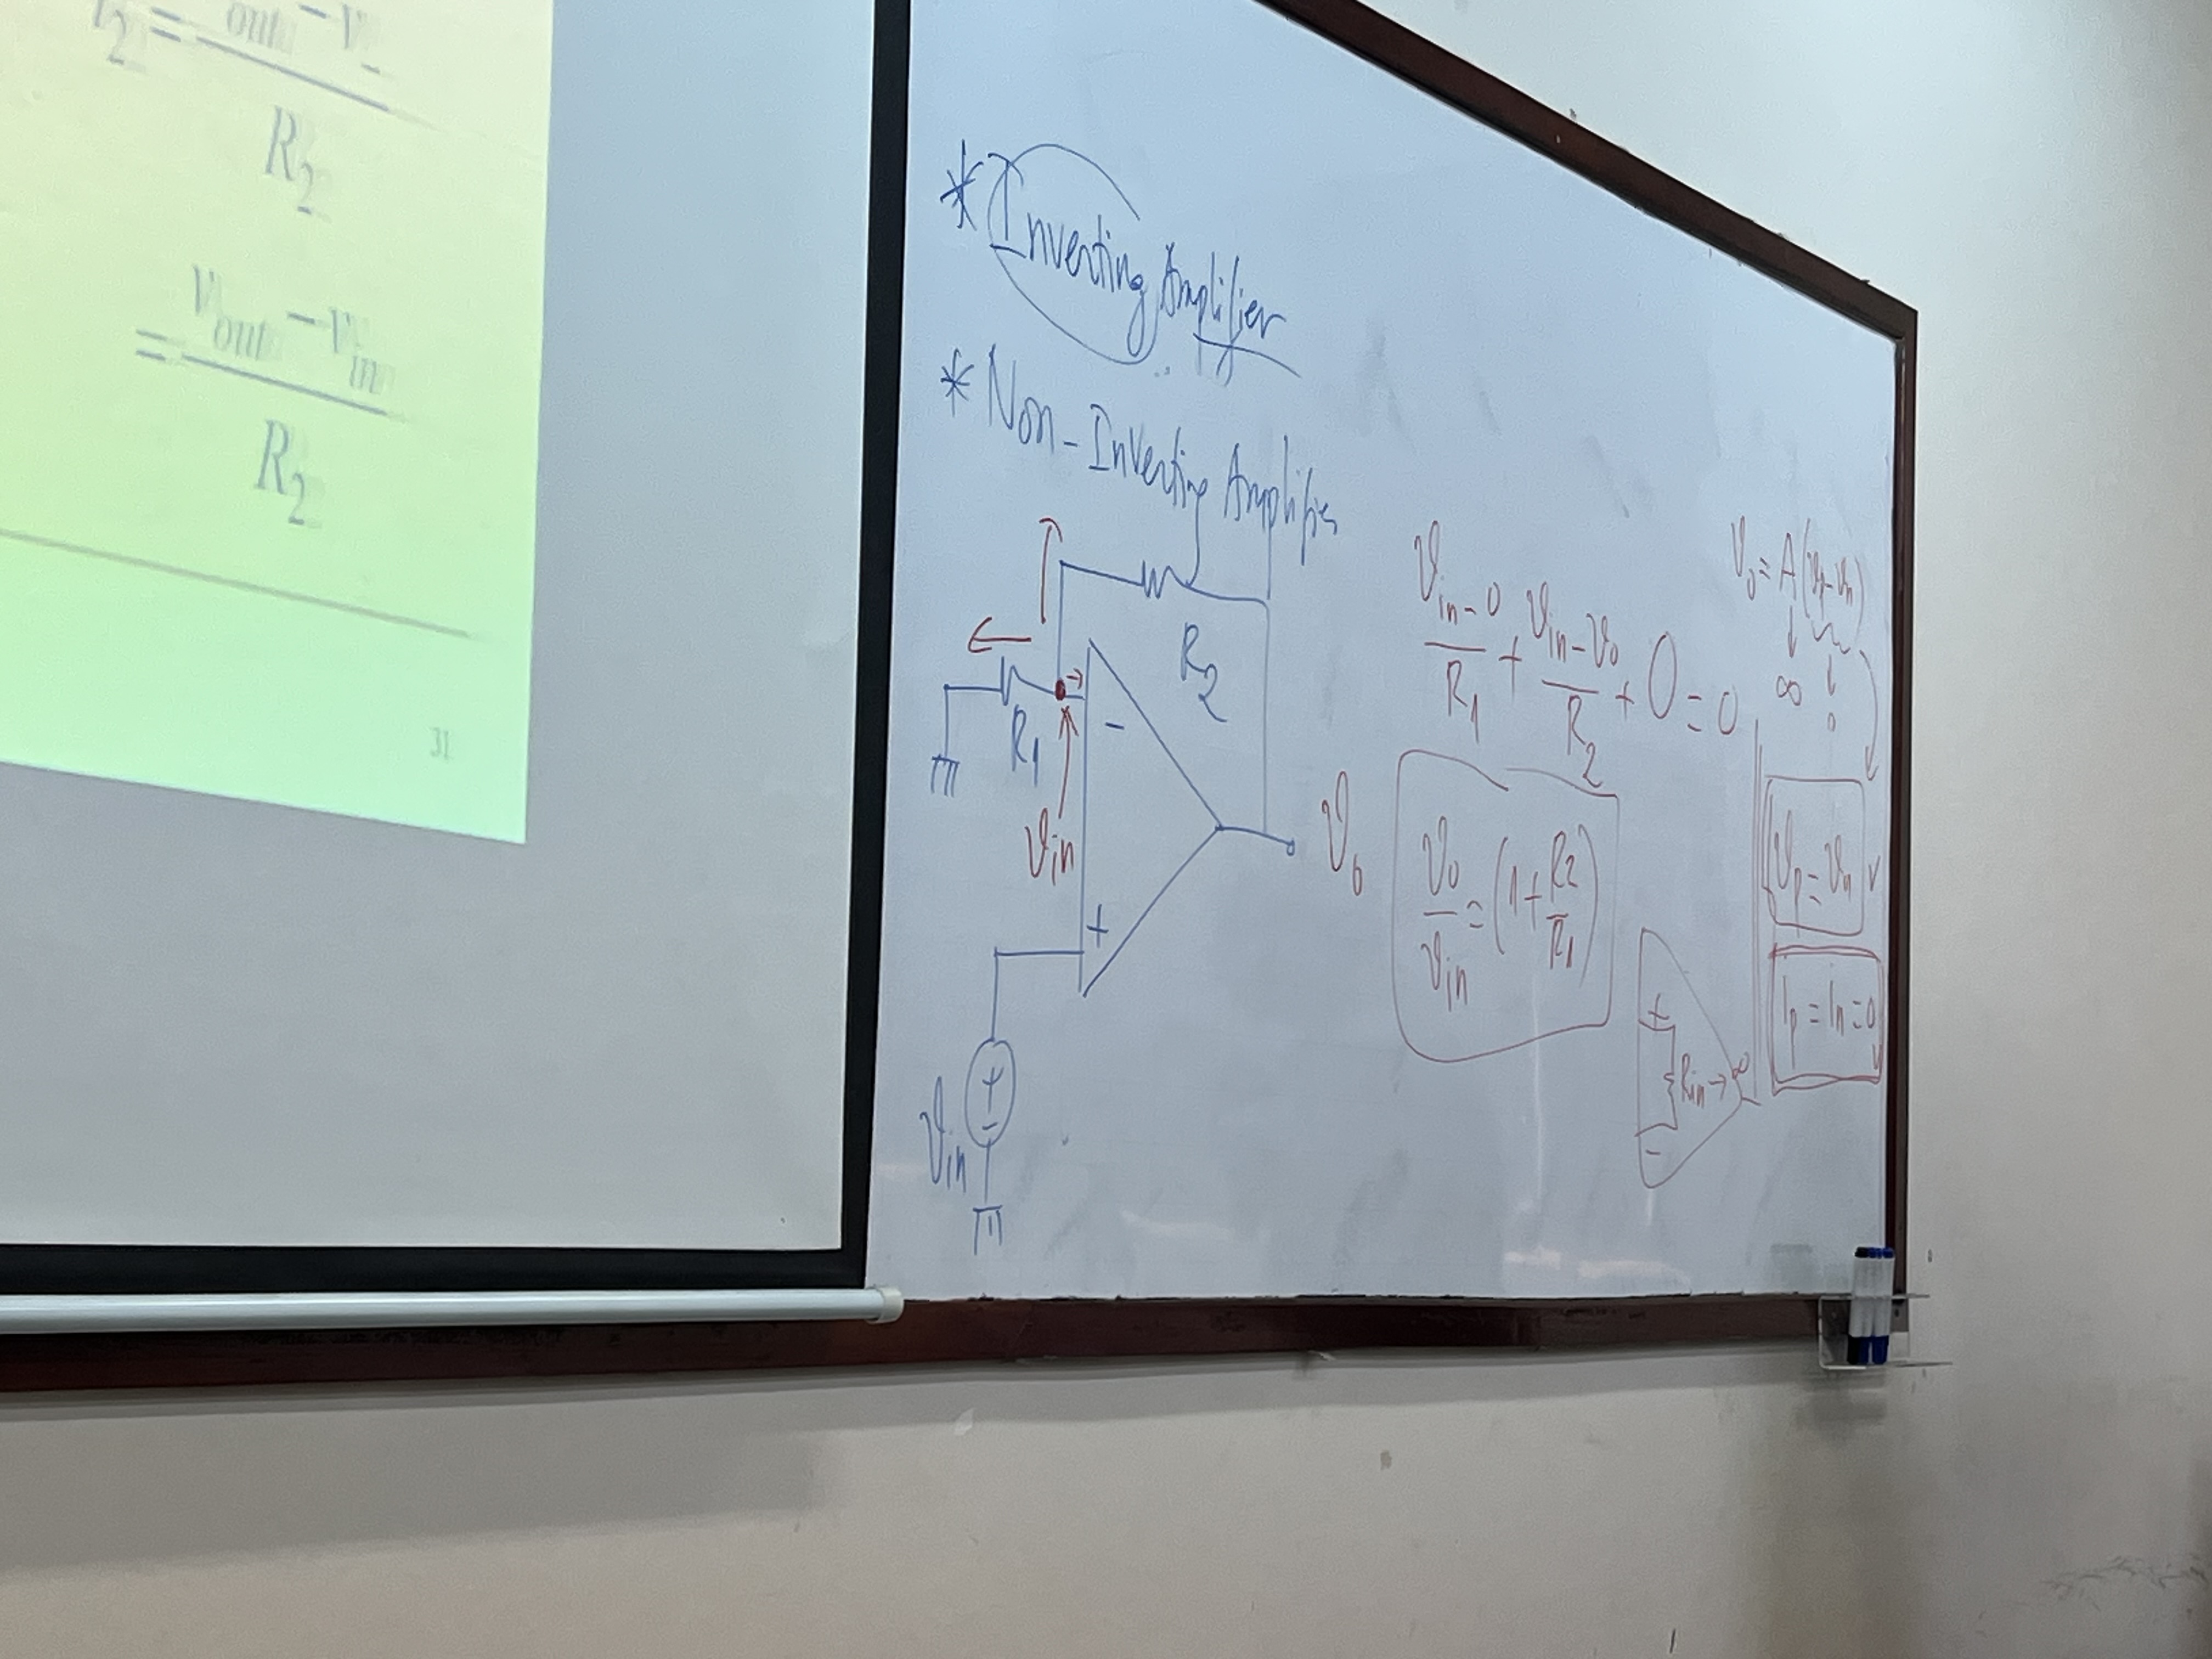 i₂ = (v_out − v₋) / R₂
= (v_out − v_in) / R₂
31
* Inverting Amplifier
* Non-Inverting Amplifier
R₂
R₁
-
v_in
+
v_in
+
-
v₀
(v_in − 0)/R₁ + (v_in − v₀)/R₂ + 0 = 0
v₀/v_in = (1 + R2/R1)
v₀ = A(v_p − v_n)
↓ ↓
∞ 0
v_p = v_n
i_p = i_n = 0
+
R_in → ∞
-